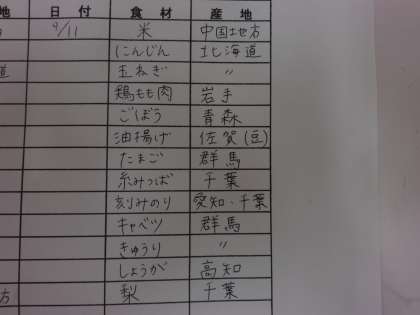 地 日付 食材 産地
9/11 米 中国地方
にんじん 北海道
道 玉ねぎ 〃
鶏もも肉 岩手
ごぼう 青森
油揚げ 佐賀(豆)
たまご 群馬
糸みつば 千葉
刻みのり 愛知・千葉
キャベツ 群馬
きゅうり 〃
しょうが 高知
方 梨 千葉